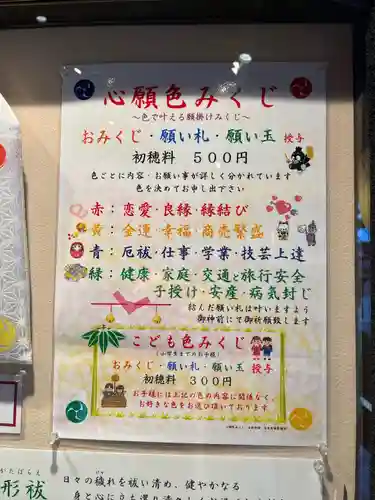 心願色みくじ
～色で叶える願掛けみくじ～
おみくじ・願い札・願い玉 授与
初穂料 500円
色ごとに内容・お願い事が詳しく分かれています
色を決めてお申し出下さい
赤：恋愛・良縁・縁結び
黄：金運・幸福・商売繁盛
青：厄祓・仕事・学業・技芸上達
緑：健康・家庭・交通・旅行安全
子授け・安産・病気封じ
結んだ願い札は叶いますよう
御神前にて御祈願致します
こども色みくじ
（小学生までのお子様）
おみくじ・願い札・願い玉 授与
初穂料 300円
お子様には上記の色の内容に関係なく、
お好きな色をお選び頂いております。
形祓
かたばらえ
日々の穢れを祓い清め、健やかな
けが
身と心に立ち還り